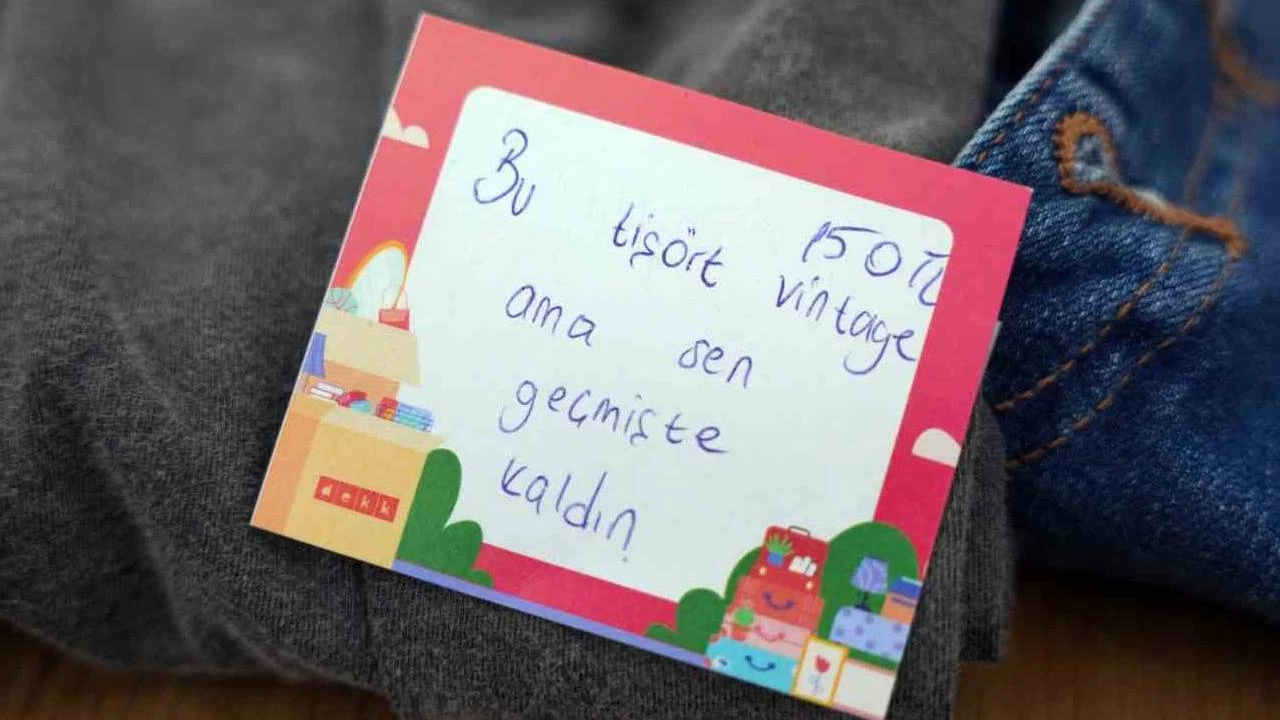 150 TL
Bu tişört vintage
ama sen
geçmişte
kaldın
dekk